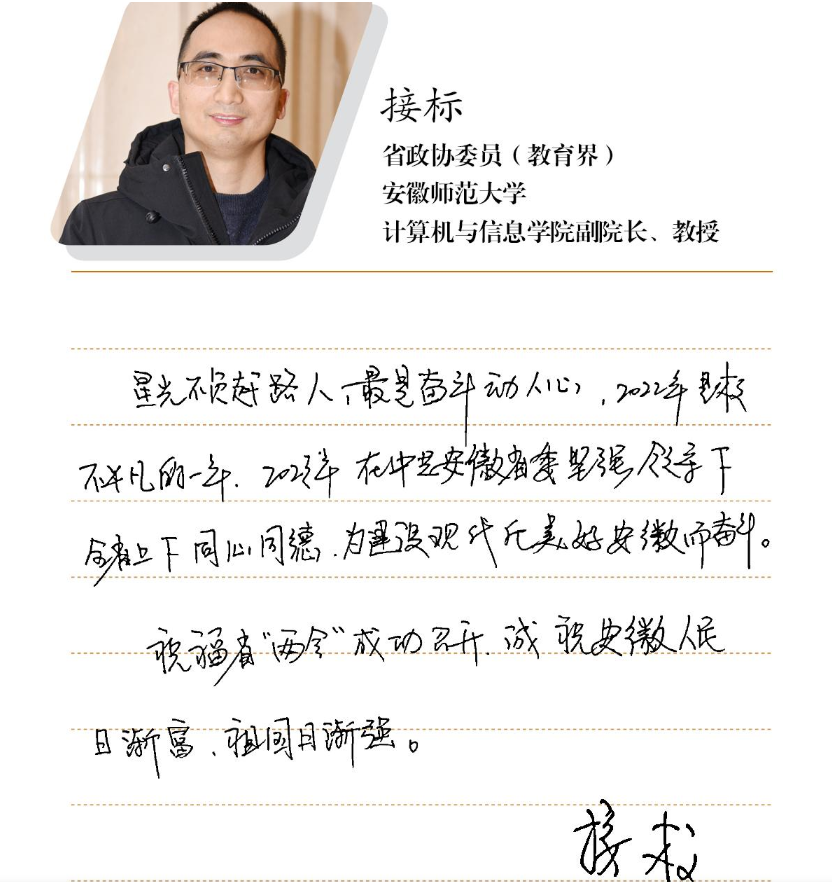 接标
省政协委员（教育界）
安徽师范大学
计算机与信息学院副院长、教授
星光不负赶路人，最是奋斗动人心，2022年是极
不平凡的一年．2023年在中共安徽省委坚强领导下
全省上下同心同德，为建设现代化美好安徽而奋斗。
祝福省“两会”成功召开，诚祝安徽人民
日渐富，祖国日渐强。
接标